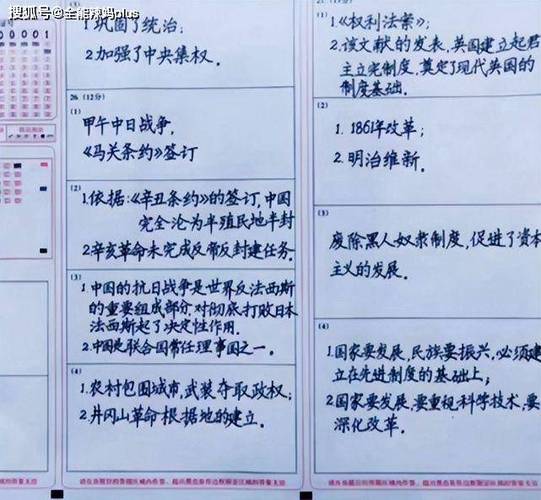 搜狐号@全能辣妈plus
00001
1.巩固了统治;
2.加强了中央集权.
26.(12分)
(1)
甲午中日战争,
《马关条约》签订
(2)
1.依据:《辛丑条约》的签订,中国
完全沦为半殖民地半封
2.辛亥革命未完成反帝反封建任务.
(3)
1.中国的抗日战争是世界反法西斯
的重要组成部分,对彻底打败日本
法西斯起了决定性作用.
2.中国是联合国常任理事国之一。
(4)
1.农村包围城市,武装夺取政权;
2.井冈山革命根据地的建立.
请在各题目的答题区域内作答,超出黑色矩形边框限定区域的答案无效
(1)
1.《权利法案》;
2.该文献的发表,英国建立起君
主立宪制度,奠定了现代英国的
制度基础.
(2)
1. 1861年改革;
2. 明治维新.
(3)
废除黑人奴隶制度,促进了资本
主义的发展.
(4)
1.国家要发展,民族要振兴,必须建
立在先进制度的基础上;
2.国家要发展,要重视科学技术,要
深化改革.
请在各题目的答题区域内作答,超出黑色矩形边框限定区域的答案无效